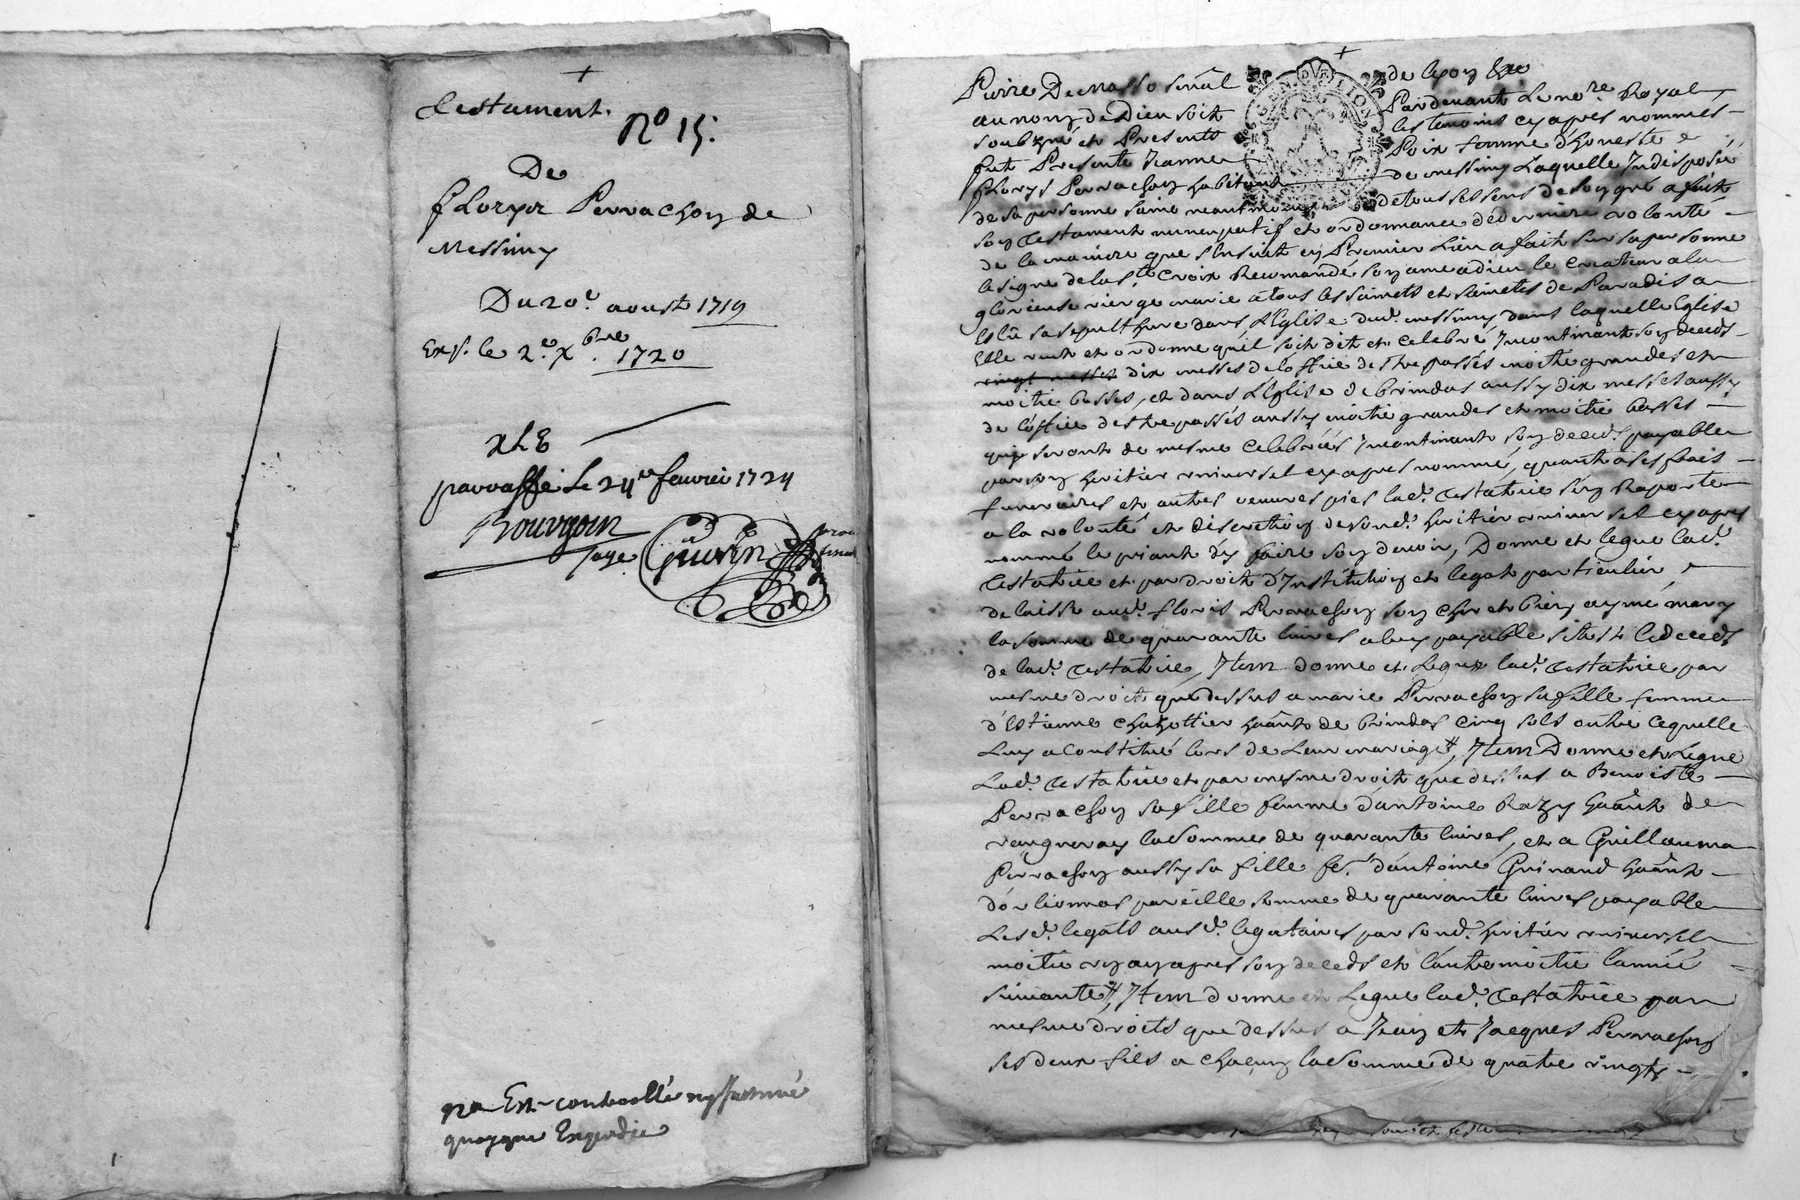 +
Testament.
N° 15:
De
fLoryx Perrachon de
Messimy
Du 20e. aoust 1719
Exp. le 2e. xbre. 1720
paraffé le 24e feurier 1724
Bourgoin
Guerin
na Esté controollé ny
quoyque Expedié
+
Pierre
de Lyon &a
au nom de Dieu soit
Pardeuant Le nore. Royal
soubzné et Presents
les temoins cy apres nommes
fut Presente Jeanne
Poix femme d'honeste
fLorys Perrachon habitant
de messimy Laquelle Indisposée
de sa personne saine neantmoins de tous ses sens de son gré a fait
son testament nuncupatif et ordonnance de derniere volonté
de la maniere que s'Ensuit en Premier Lieu a fait sur sa personne
le signe de la ste croix Recomandé son ame a dieu le createur a la
glorieuse vierge marie a tous les saincts et sainctes de Paradis a
Eslû sa sepulthure dans L'Eglise dud. messimy dans laquelle Eglise
Elle veut et ordonne qu'il soit dit et celebré Incontinant son deceds
vingt messes dix messes de L'office des trepassés moitié grandes et
moitié basses, et dans L'Eglise de brindas aussy dix messes aussy
de L'office des trepassés aussy moitié grandes et moitié basses
quy seront de mesme celebrées Incontinant son deceds payable
par son heritier vniuersel cy apres nommé, quant a ses frais
funeraires et autres oeuures pies lad. testatrice s'en Raporte
a la volonté et discretion de sond. heritier vniuersel cy apres
nommé le priant d'en faire son deuoir, Donne et legue lad.
testatrice et par droit d'Institution et legat particulier
delaisse aud. floris Perrachon son cher et bien aymé mary
la somme de quarante liures a luy payable sitost le deceds
de lad. testatrice, Item donne et Legue lad. testatrice par
mesme droit que dessus a marie Perrachon sa fille femme
d'Estienne chazottier habant de brindas cinq sols outre ce quelle
Luy a constitué lors de Leur mariage, Item Donne et Legue
Lad. testatrice et par mesme droit que dessus a Benoiste
Perrachon sa fille femme d'antoine Razy habant de
vaugneray la somme de quarante liures, et a Guillauma
Perrachon aussy sa fille fe. d'antoine Guinand habant
d'orlienas pareille somme de quarante liures payable
Les d. legats ausd. legataires par sond. heritier vniuersel
moitié vn an apres son deceds et l'autre moitié l'année
suiuante, Item donne et Legue lad. testatrice par
mesme droits que dessus a Jean et Jacques Perrachon
ses deux fils a chacun la somme de quatre vingts